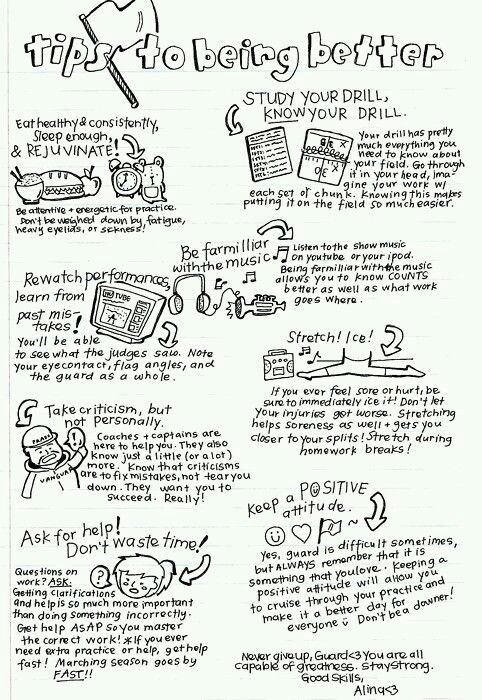 tips to being better
Eat healthy & consistently,
Sleep enough,
& REJUVINATE!
Be attentive + energetic for practice.
Don't be weighed down by fatigue,
heavy eyelids, or sickness!
STUDY YOUR DRILL,
KNOW YOUR DRILL.
Your drill has pretty
much everything you
need to know about
your field. Go through
it in your head, ima-
gine your work w/
each set of chunk. Knowing this makes
putting it on the field so much easier.
Be farmilliar
with the music
Listen to the show music
on youtube or your ipod.
Being farmilliar with the music
allows you to know COUNTS
better as well as what work
goes where.
Rewatch performances,
learn from
past mis-
takes!
You'll be able
to see what the judges saw. Note
your eyecontact, flag angles, and
the guard as a whole.
Stretch! Ice!
If you ever feel sore or hurt, be
sure to immediately ice it! Don't let
your injuries get worse. Stretching
helps soreness as well + gets you
closer to your splits! Stretch during
homework breaks!
Take criticism, but
not personally.
Coaches + captains are
here to help you. They also
know just a little (or a lot)
more. Know that criticisms
are to fix mistakes, not tear you
down. They want you to
succeed. Really!
VANGUARD
Keep a POSITIVE
attitude.
Yes, guard is difficult sometimes,
but ALWAYS remember that it is
something that you love. Keeping a
positive attitude will allow you
to cruise through your practice and
make it a better day for
everyone Don't be a downer!
Ask for help!
Don't waste time!
Questions on
work? ASK.
Getting clarifications
and help is so much more important
than doing something incorrectly.
Get help ASAP so you master
the correct work! *If you ever
need extra practice or help, get help
fast! Marching season goes by
FAST!!
Never give up, Guard<3 You are all
capable of greatness. Stay strong.
Good Skills,
Alina<3